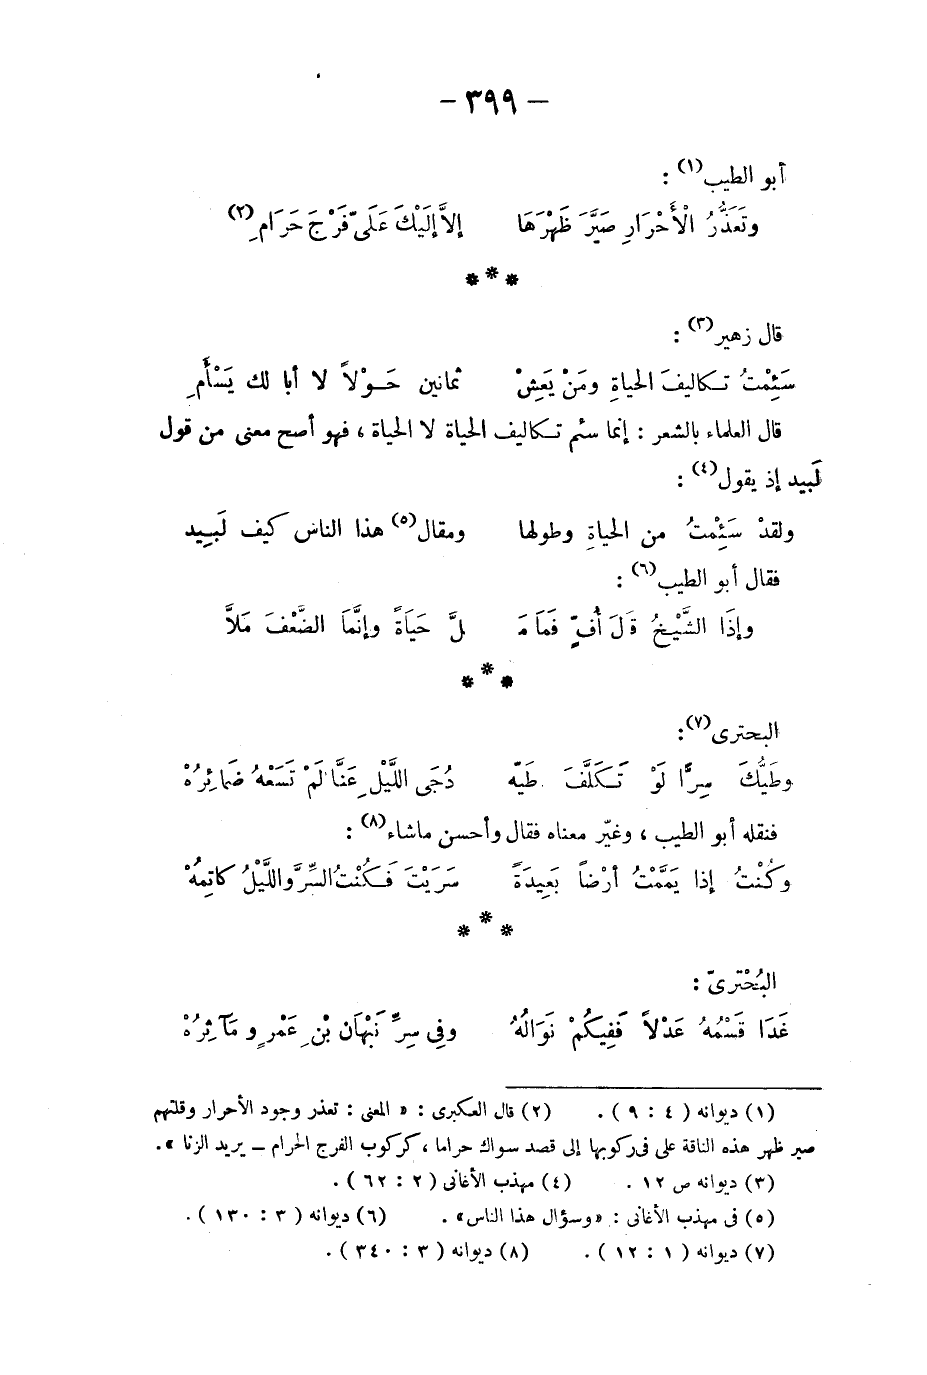 – ٣٩٩ –
أبو الطيب(١) :
وتَعَذُّرُ الْأَحْرَارِ صَيَّرَ ظَهْرَهَا إلاَّ إلَيْكَ عَلَىَّ فَرْجَ حَرَامِ(٢)
* * *
قال زهير(٣) :
سَئِمْتُ تكاليفَ الحياةِ ومَنْ يَعِشْ ثمانين حَوْلاً لا أبا لك يَسْأَمِ
قال العلماء بالشعر : إنما سئم تكاليف الحياة لا الحياة ، فهو أصح معنى من قول
لَبيد إذ يقول(٤) :
ولقدْ سَئِمْتُ من الحياةِ وطولها ومقال(٥) هذا الناس كيف لَبيد
فقال أبو الطيب(٦) :
وإذَا الشَّيْخُ قَالَ أُفٍّ فَمَا مَـ ـلَّ حَيَاةً وإنَّمَا الضَّعْفَ مَلاَّ
* * *
البحترى(٧):
وطَيُّكَ سِرًّا لَوْ تَكَلَّفَ طَيَّه دُجَى اللَّيْلِ عَنَّا لَمْ تَسَعْهُ ضَمَائِرُهْ
فنقله أبو الطيب ، وغيّر معناه فقال وأحسن ماشاء(٨) :
وكُنْتُ إذا يَمَّمْتُ أرْضاً بَعِيدَةً سَرَيْتَ فَكُنْتُ السِّرَّ واللَّيْلُ كاتِمُهْ
* * *
البُحْترىّ :
غَدَا قَسْمُهُ عَدْلاً فَفِيكُمْ نَوَالُهُ وفِى سِرِّ نَبْهَانَ بْنِ عَمْرٍو مَآثِرُهْ
(١) ديوانه ( ٤ : ٩ ) . (٢) قال العكبرى : « المعنى : تعذر وجود الأحرار وقلتهم
صير ظهر هذه الناقة على فى ركوبها إلى قصد سواك حراما ، كركوب الفرج الحرام – يريد الزنا » .
(٣) ديوانه ص ١٢ . (٤) مهذب الأغانى ( ٢ : ٦٢ ) .
(٥) فى مهذب الأغانى : «وسؤال هذا الناس» . (٦) ديوانه ( ٣ : ١٣٠ ) .
(٧) ديوانه ( ١ : ١٢ ) . (٨) ديوانه ( ٣ : ٣٤٠ ) .